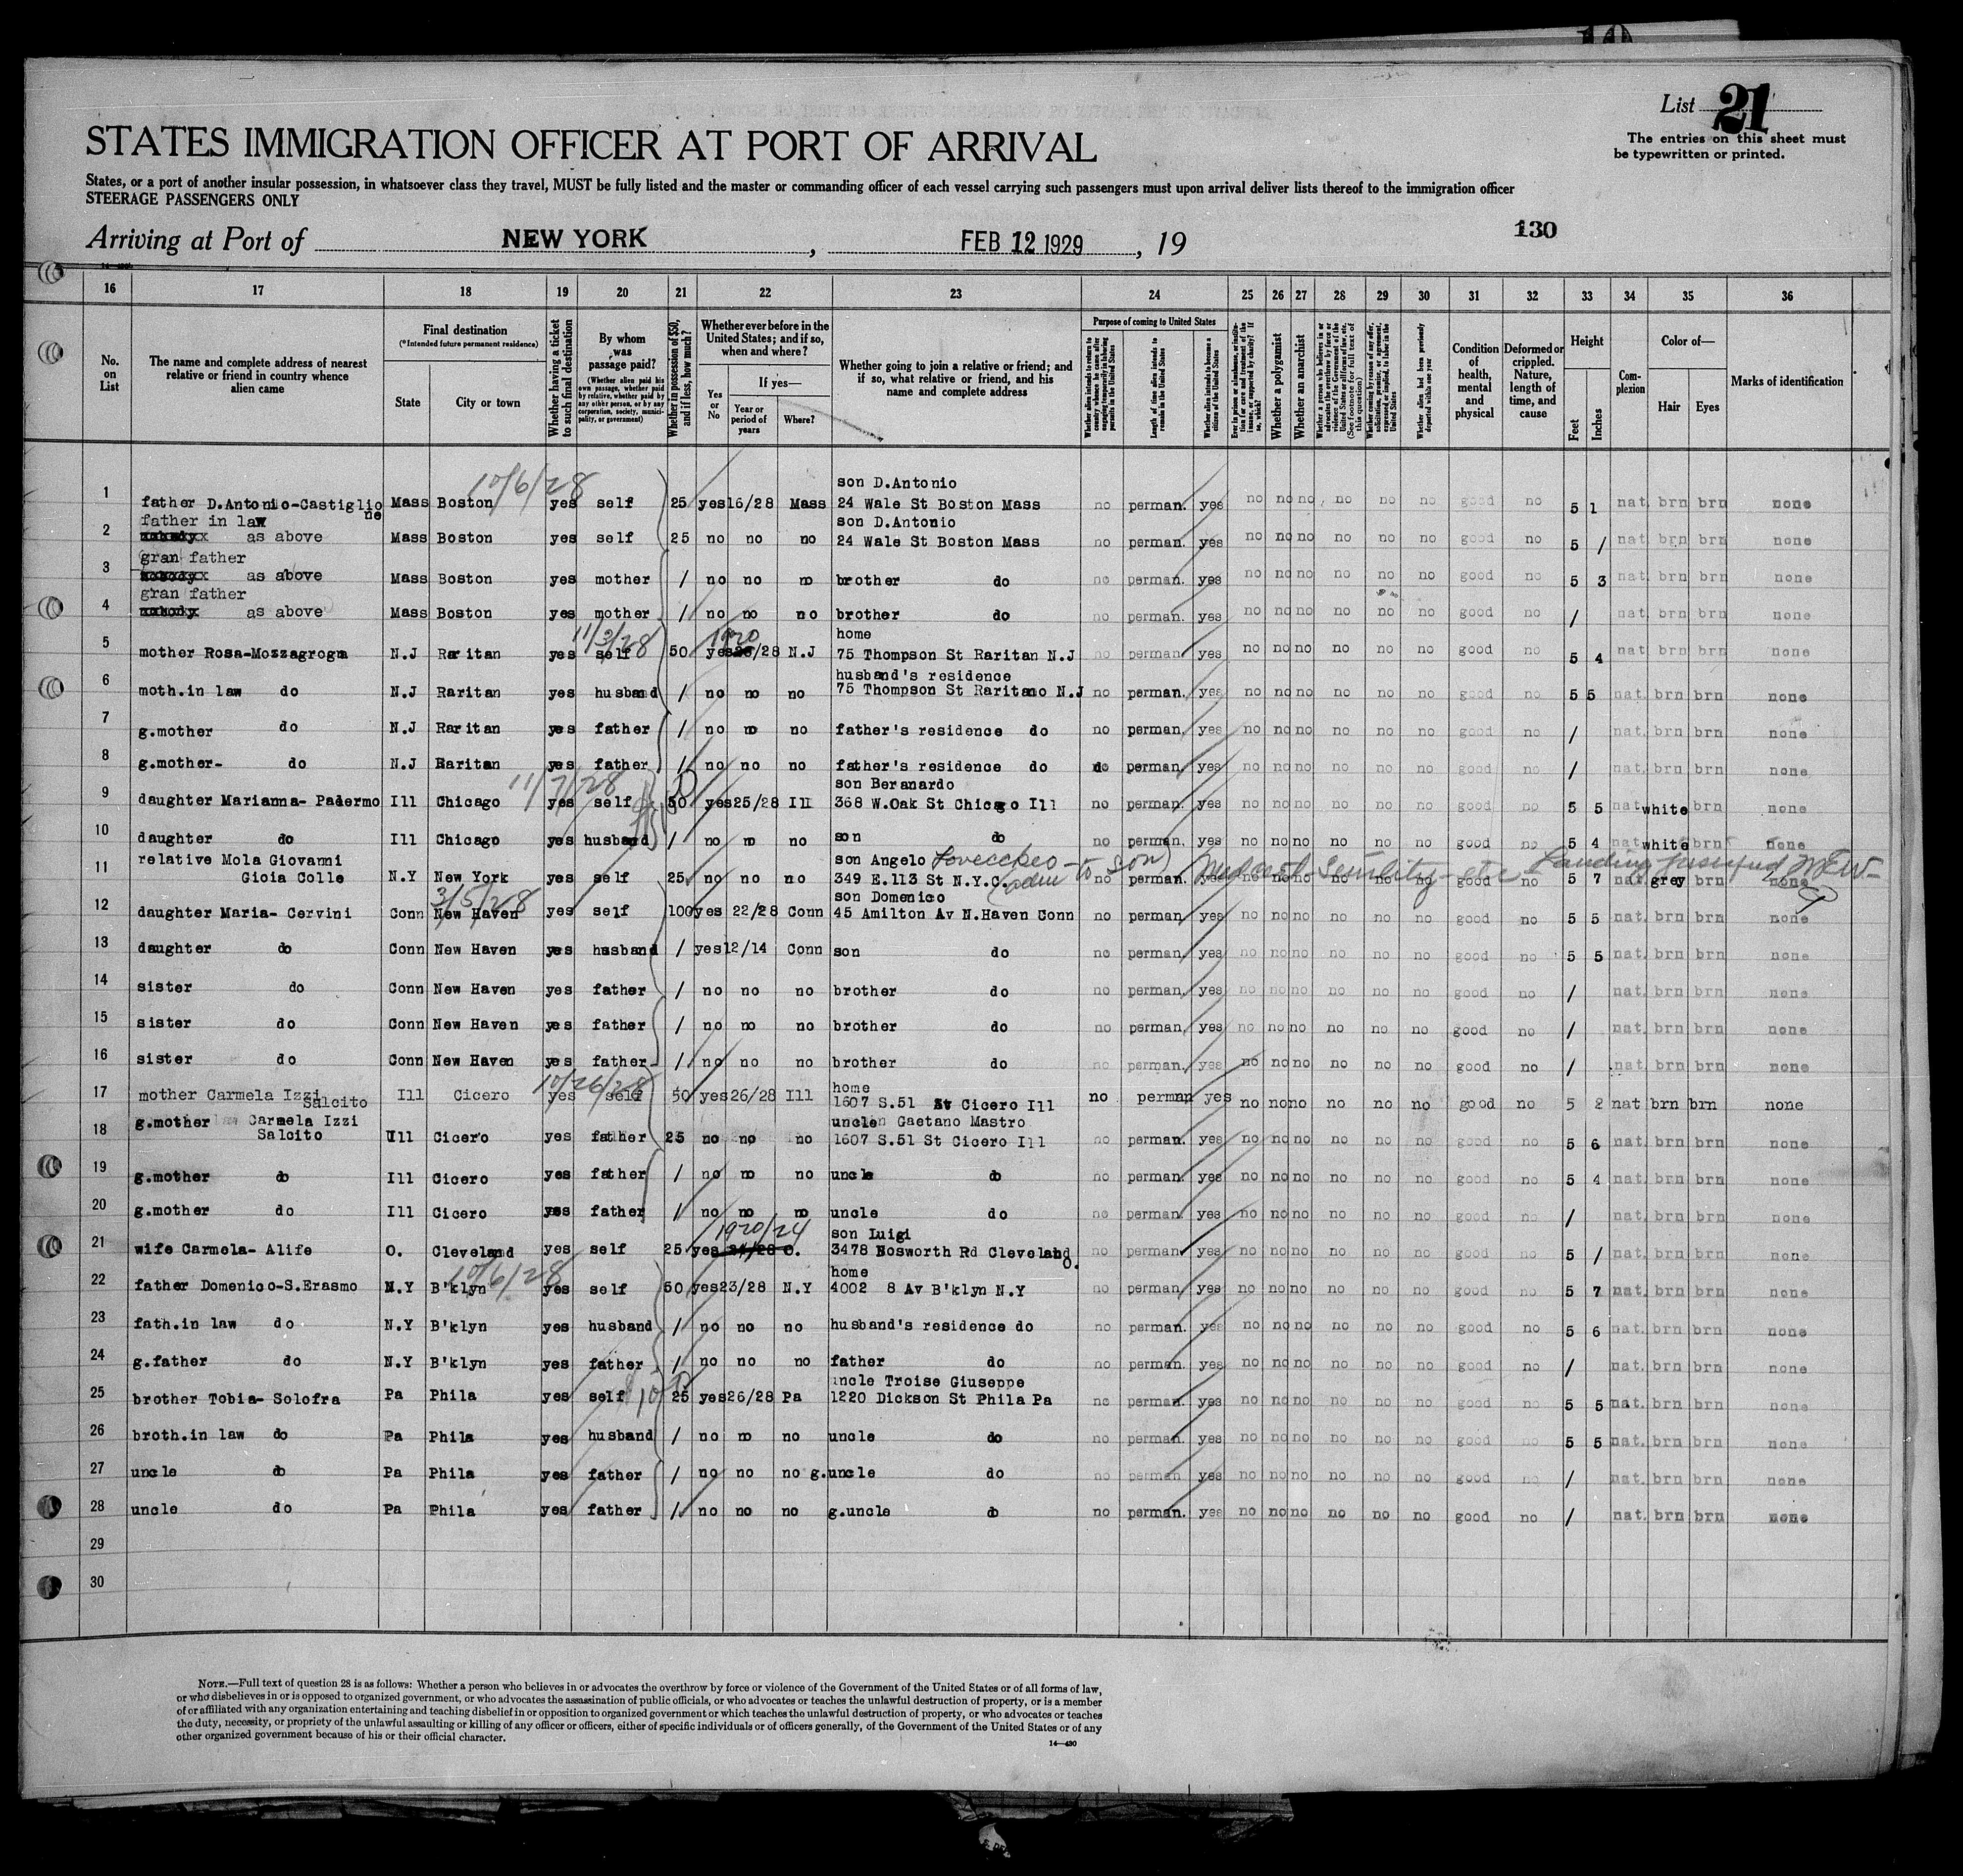 List 21
The entries on this sheet must
be typewritten or printed.
STATES IMMIGRATION OFFICER AT PORT OF ARRIVAL
States, or a port of another insular possession, in whatsoever class they travel, MUST be fully listed and the master or commanding officer of each vessel carrying such passengers must upon arrival deliver lists thereof to the immigration officer
STEERAGE PASSENGERS ONLY
130
Arriving at Port of NEW YORK, FEB 12 1929, 19
16 17 18 19 20 21 22 23 24 25 26 27 28 29 30 31 32 33 34 35 36
No. on List
The name and complete address of nearest relative or friend in country whence alien came
Final destination
(*Intended future permanent residence)
State
City or town
Whether having a ticket to such final destination
By whom was passage paid?
(Whether alien paid his own passage, whether paid by relative, whether paid by any other person, or by any corporation, society, municipality, or government)
Whether in possession of $50, and if less, how much?
Whether ever before in the United States; and if so, when and where?
Yes or No
If yes—
Year or period of years
Where?
Whether going to join a relative or friend; and if so, what relative or friend, and his name and complete address
Purpose of coming to United States
Length of time alien intends to remain in the United States
Whether alien intends to become a citizen of the United States
Whether a polygamist
Whether an anarchist
Condition of health, mental and physical
Deformed or crippled. Nature, length of time, and cause
Height
Feet
Inches
Complexion
Color of—
Hair
Eyes
Marks of identification
10/6/28
son D.Antonio
1 father D.Antonio-Castiglione Mass Boston yes self 25 yes 16/28 Mass 24 Wale St Boston Mass no perman. yes no no no no no no good no 5 1 nat. brn brn none
father in law son D.Antonio
2 as above Mass Boston yes self 25 no no no 24 Wale St Boston Mass no perman. yes no no no no no no good no 5 / nat. brn brn none
gran father
3 as above Mass Boston yes mother / no no no brother do no perman. yes no no no no no no good no 5 3 nat. brn brn none
gran father
4 as above Mass Boston yes mother / no no no brother do no perman. yes no no no no no no good no / nat. brn brn none
11/3/28 1920 home
5 mother Rosa-Mozzagrogna N.J Raritan yes self 50 yes /28 N.J 75 Thompson St Raritan N.J no perman. yes no no no no no no good no 5 4 nat brn brn none
husband's residence
6 moth.in law do N.J Raritan yes husband / no no no 75 Thompson St Raritano N.J no perman. yes no no no no no no good no 5 5 nat. brn brn none
7 g.mother do N.J Raritan yes father / no no no father's residence do no perman. yes no no no no no no good no / nat. brn brn none
8 g.mother- do N.J Raritan yes father / no no no father's residence do perman. yes no no no no no no good no / nat. brn brn none
11/7/28 son Beranardo
9 daughter Marianna- Padermo Ill Chicago yes self 50 yes 25/28 Ill 368 W.Oak St Chicago Ill no perman. yes no no no no no no good no 5 5 nat white brn none
10 daughter do Ill Chicago yes husband / no no no son do no perman. yes no no no no no no good no 5 4 nat. white brn none
relative Mola Giovanni son Angelo Lovecchio
11 Gioia Colle N.Y New York yes self 25 no no no 349 E.113 St N.Y.C. no perman. yes no no no no no no good no 5 7 nat grey brn none
(adm to son) Landing
3/5/28 son Domenico
12 daughter Maria- Cervini Conn New Haven yes self 100 yes 22/28 Conn 45 Amilton Av N.Haven Conn no perman. yes no no no no no no good no 5 5 nat. brn brn none
13 daughter do Conn New Haven yes husband / yes 12/14 Conn son do no perman. yes no no no no no no good no 5 5 nat. brn brn none
14 sister do Conn New Haven yes father / no no no brother do no perman. yes no no no no no no good no / nat. brn brn none
15 sister do Conn New Haven yes father / no no no brother do no perman. yes no no no no no no good no / nat. brn brn none
16 sister do Conn New Haven yes father / no no no brother do no perman. yes no no no no no no good no / nat. brn brn none
10/26/28 home
17 mother Carmela Izzi Salcito Ill Cicero yes self 50 yes 26/28 Ill 1607 S.51 St Cicero Ill no perman yes no no no no no no good no 5 2 nat brn brn none
g.mother Carmela Izzi uncle Gaetano Mastro
18 Salcito Ill Cicero yes father 25 no no no 1607 S.51 St Cicero Ill no perman. yes no no no no no no good no 5 6 nat. brn brn none
19 g.mother do Ill Cicero yes father / no no no uncle do no perman. yes no no no no no no good no 5 4 nat. brn brn none
20 g.mother do Ill Cicero yes father / no no no uncle do no perman. yes no no no no no no good no / nat. brn brn none
1920/24 son Luigi
21 wife Carmela- Alife O. Cleveland yes self 25 yes O. 3478 Bosworth Rd Cleveland O. no perman. yes no no no no no no good no 5 / nat. brn brn none
10/6/28 home
22 father Domenico-S.Erasmo N.Y B'klyn yes self 50 yes 23/28 N.Y 4002 8 Av B'klyn N.Y no perman. yes no no no no no no good no 5 7 nat. brn brn none
23 fath.in law do N.Y B'klyn yes husband / no no no husband's residence do no perman. yes no no no no no no good no 5 6 nat. brn brn none
24 g.father do N.Y B'klyn yes father / no no no father do no perman. yes no no no no no no good no / nat. brn brn none
uncle Troise Giuseppe
25 brother Tobia- Solofra Pa Phila yes self 25 yes 26/28 Pa 1220 Dickson St Phila Pa no perman. yes no no no no no no good no 5 5 nat. brn brn none
26 broth.in law do Pa Phila yes husband / no no no uncle do no perman. yes no no no no no no good no 5 5 nat. brn brn none
27 uncle do Pa Phila yes father / no no no g.uncle do no perman yes no no no no no no good no / nat. brn brn none
28 uncle do Pa Phila yes father / no no no g.uncle do no perman. yes no no no no no no good no / nat. brn brn none
29
30
NOTE.—Full text of question 28 is as follows: Whether a person who believes in or advocates the overthrow by force or violence of the Government of the United States or of all forms of law,
or who disbelieves in or is opposed to organized government, or who advocates the assassination of public officials, or who advocates or teaches the unlawful destruction of property, or is a member
of or affiliated with any organization entertaining and teaching disbelief in or opposition to organized government or which teaches the unlawful destruction of property, or who advocates or teaches
the duty, necessity, or propriety of the unlawful assaulting or killing of any officer or officers, either of specific individuals or of officers generally, of the Government of the United States or of any
other organized government because of his or their official character.
14—430